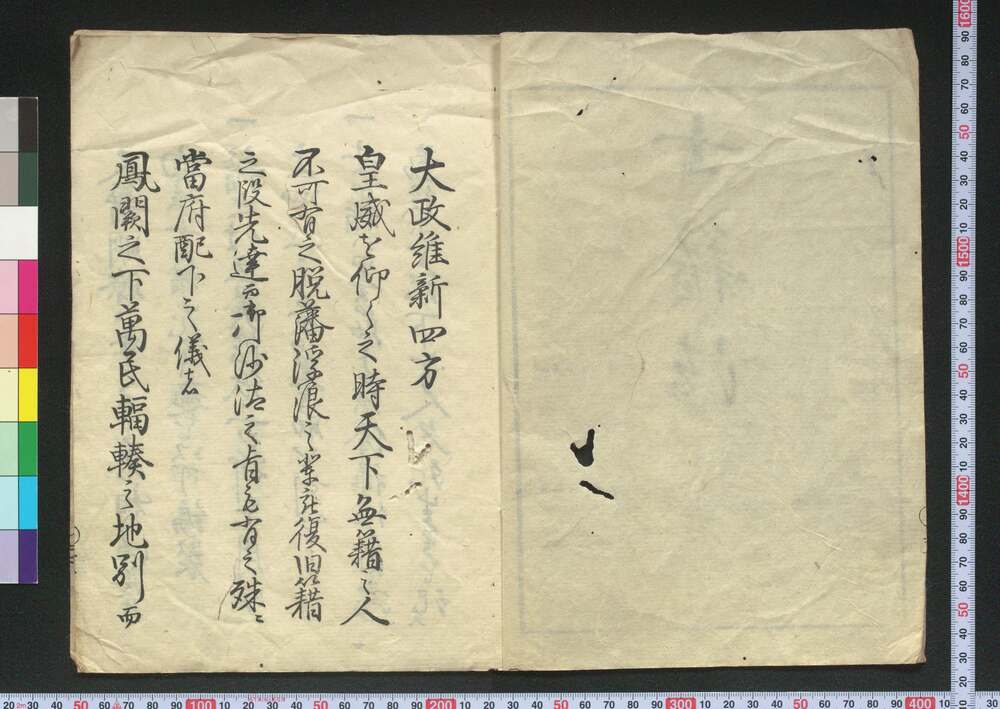 大政維新四方
皇威を仰く之時天下無籍之人
不可有之脱藩浮浪之業
復旧籍
之段先達而御沙汰之旨も有之殊ニ
當府配下之儀者
鳳闕之下萬民輻輳之地別而